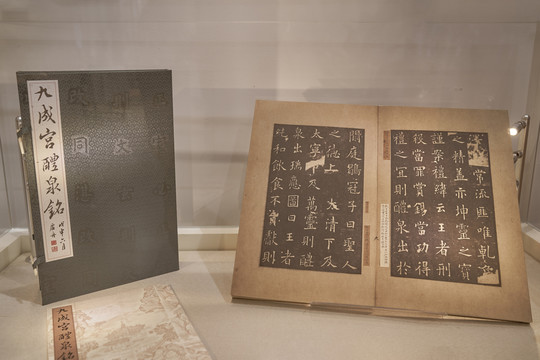 九成宮醴泉銘
戊申六月
常流匪唯乾
之精蓋亦坤靈之寶
謹案禮緯云王者刑
殺當罪賞錫當功得
禮之宜則醴泉出於
闕庭鶡冠子曰聖人
之德上及太清下及
太寧中及萬靈則醴
泉出瑞應圖曰王者
純和飲食不貢獻則
九成宮醴泉銘